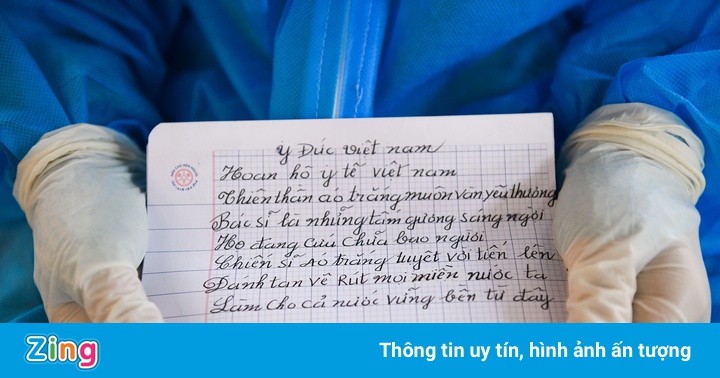 Y Đức việt nam
Hoan hô y tế việt nam
Thiên thần áo trắng muôn vàn yêu thương
Bác sĩ là những tấm gương sáng ngời
Họ đang cứu chữa bao người
Chiến sĩ áo trắng tuyệt vời tiến lên
Đánh tan vê Rút mọi miền nước ta
Làm cho cả nước vững bền từ đây
Zing
Thông tin uy tín, hình ảnh ấn tượng